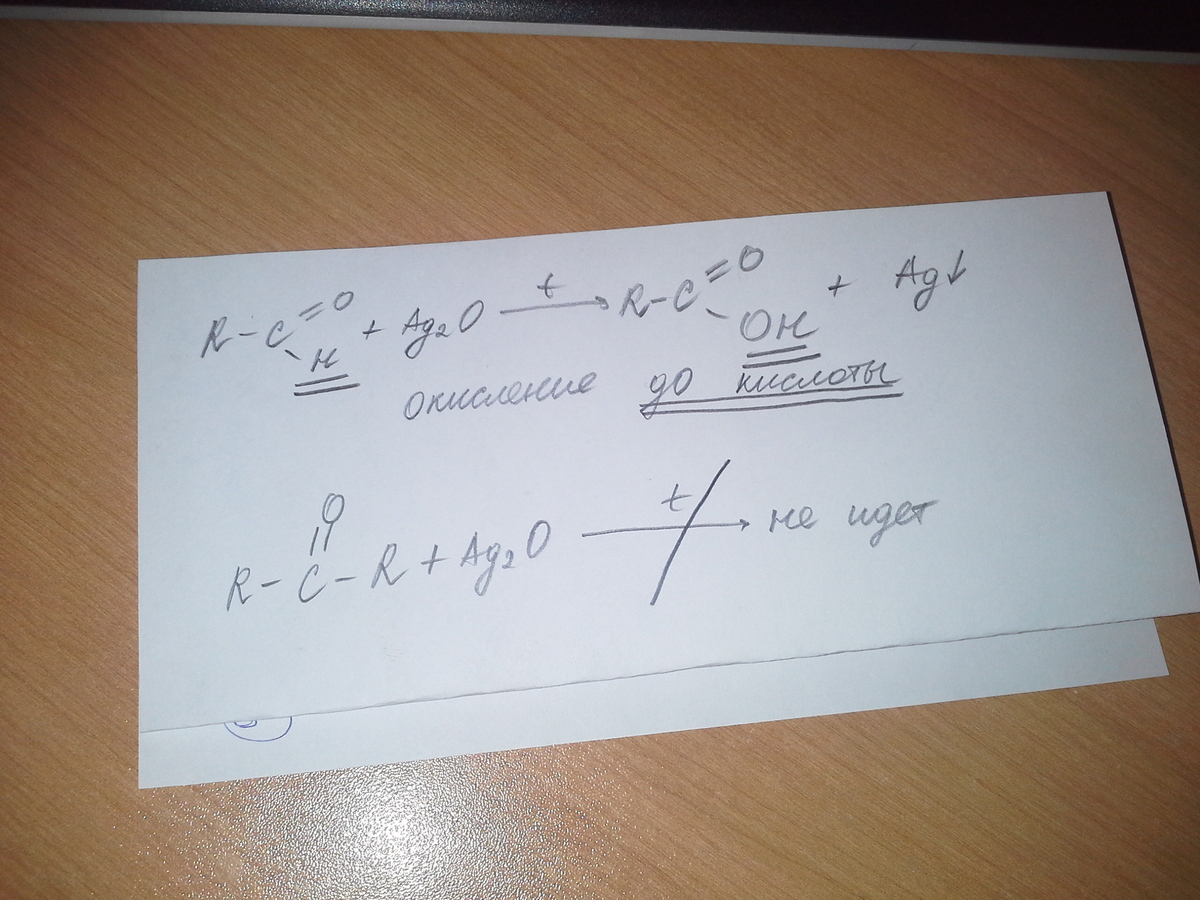 R-C=O-H + Ag₂O →t R-C=O-OH + Ag↓
окисление до кислоты
O
||
R-C-R + Ag₂O →t не идет